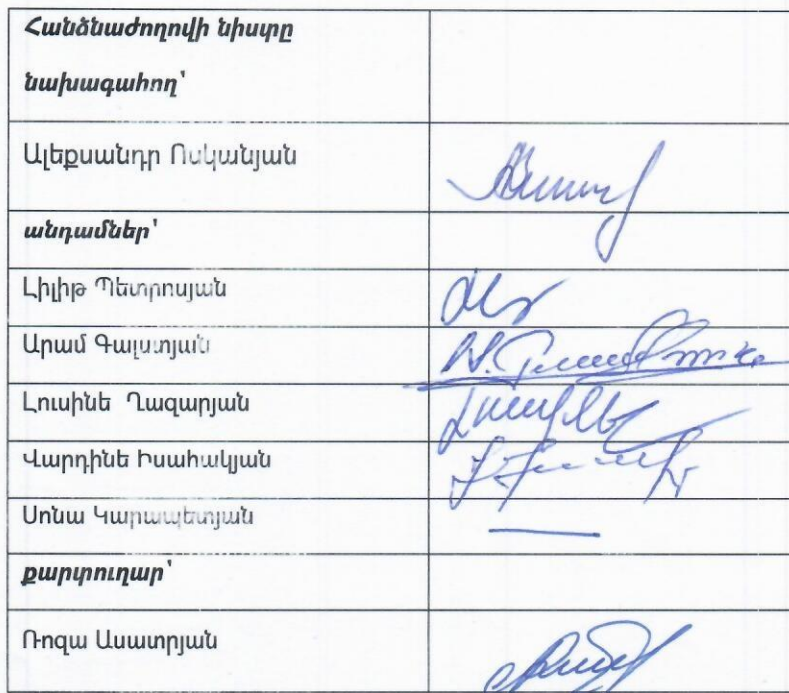 Հանձնաժողովի նիստը
նախագահող՝
Ալեքսանդր Ոսկանյան
անդամներ՝
Լիլիթ Պետրոսյան
Արամ Գալստյան
Լուսինե Ղազարյան
Վարդինե Իսահակյան
Սոնա Կարապետյան
քարտուղար՝
Ռոզա Ասատրյան